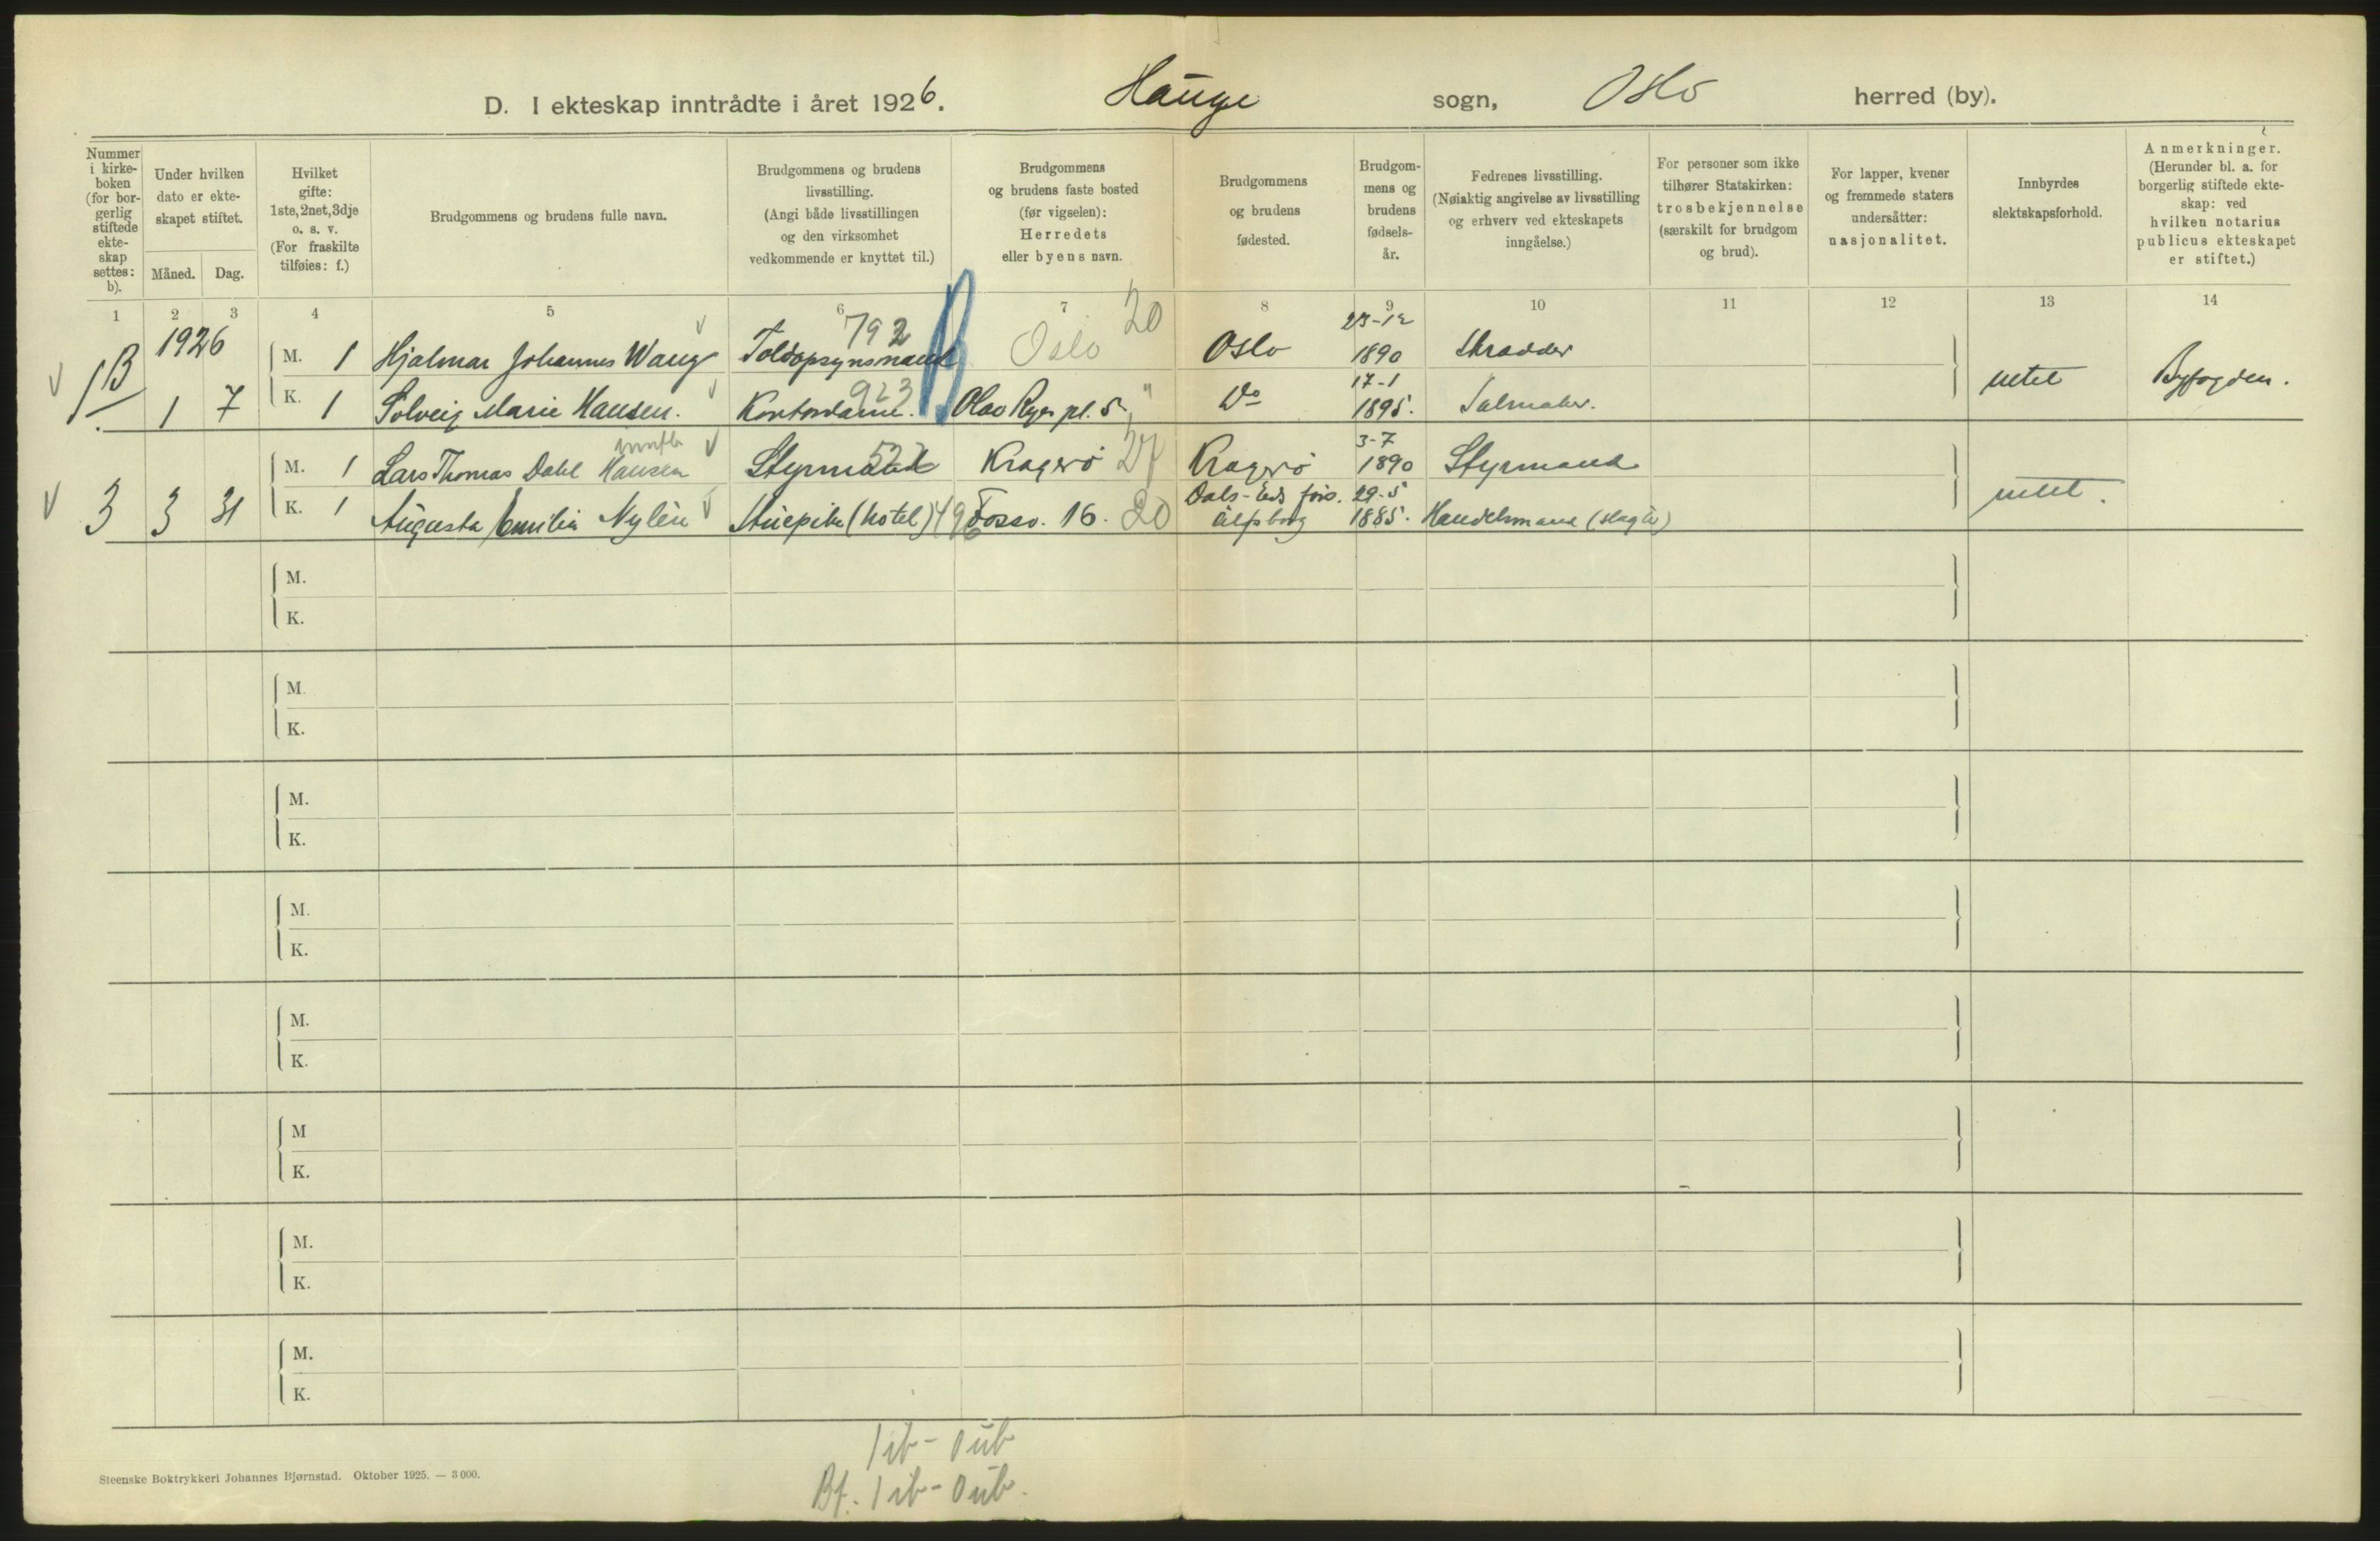 D. I ekteskap inntrådte i året 1926. Hauge sogn, Oslo herred (by).
Nummer i kirke- boken (for bor- gerlig stiftede ekte- skap settes: b).
Under hvilken dato er ekte- skapet stiftet.
Måned. Dag.
Hvilket gifte: 1ste, 2net, 3dje o. s. v. (For fraskilte tilføies: f.)
Brudgommens og brudens fulle navn.
Brudgommens og brudens livsstilling. (Angi både livsstillingen og den virksomhet vedkommende er knyttet til.)
Brudgommens og brudens faste bosted (før vigselen): Herredets eller byens navn.
Brudgommens og brudens fødested.
Brudgom- mens og brudens fødsels- år.
Fedrenes livsstilling. (Nøiaktig angivelse av livsstilling og erhverv ved ekteskapets inngåelse.)
For personer som ikke tilhører Statskirken: trosbekjennelse (særskilt for brudgom og brud).
For lapper, kvener og fremmede staters undersåtter: nasjonalitet.
Innbyrdes slektskapsforhold.
Anmerkninger. (Herunder bl. a. for borgerlig stiftede ekte- skap: ved hvilken notarius publicus ekteskapet er stiftet.)
1 2 3 4 5 6 7 8 9 10 11 12 13 14
1926 792 B 20 23-12
1B M. 1 Hjalmar Johannes Wang Toldopsynsmand Oslo Oslo 1890 Skrædder
923 17-1
1 7 K. 1 Solveig Marie Hansen. Kontordame. Olav Ryes pl. 5 " Do 1895. Salmaker. intet Byfogden.
3-7
M. 1 Lars Thomas Dahl Hansen Styrmand 522 Kragerø 27 Kragerø 1890 Styrmand
Dals-Eds fors. 29-5
3 3 31 K. 1 Augusta Emilia Nylén Stuepike (hotel) 496 Fossv. 16. 20 Älfsborg 1885. Handelsmand (slagter) intet.
M.
K.
M.
K.
M.
K.
M.
K.
M.
K.
M
K.
M.
K.
M.
K.
1 ib - 0 ub
Bf. 1 ib - 0 ub.
Steenske Boktrykkeri Johannes Bjørnstad. Oktober 1925. — 3 000.